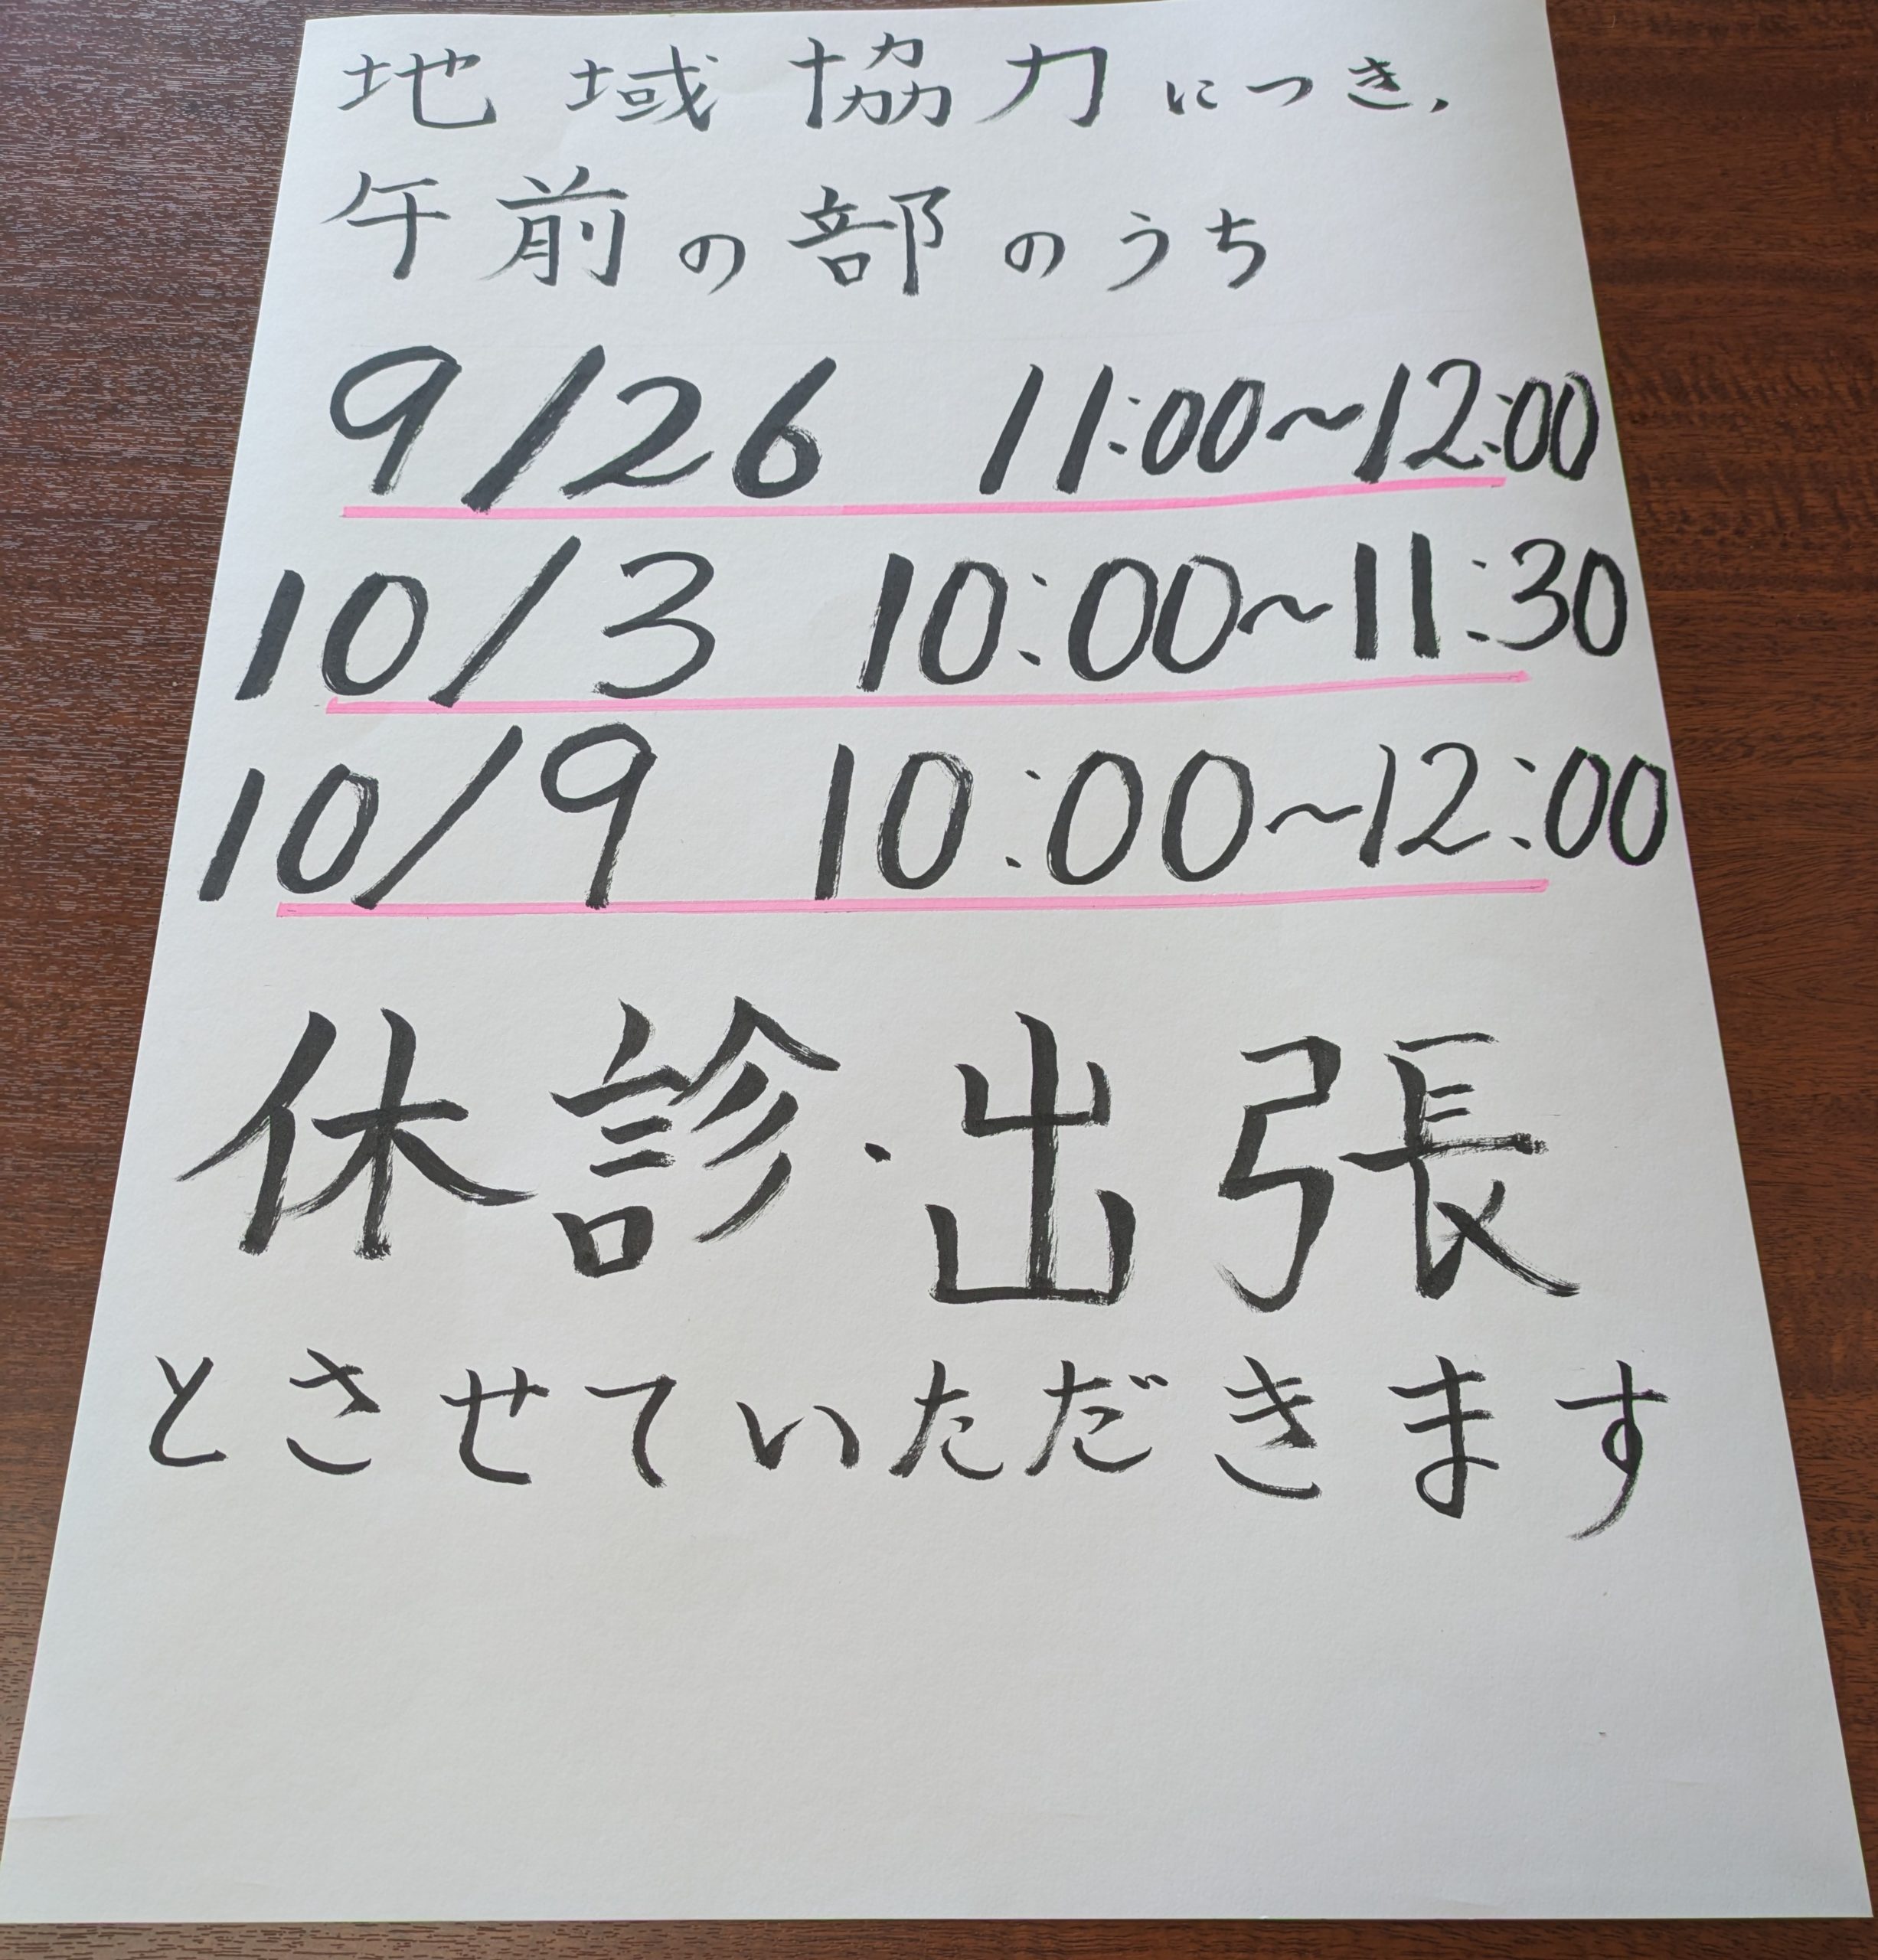 地域協力につき,
午前の部のうち
9/26 11:00~12:00
10/3 10:00~11:30
10/9 10:00~12:00
休診・出張
とさせていただきます